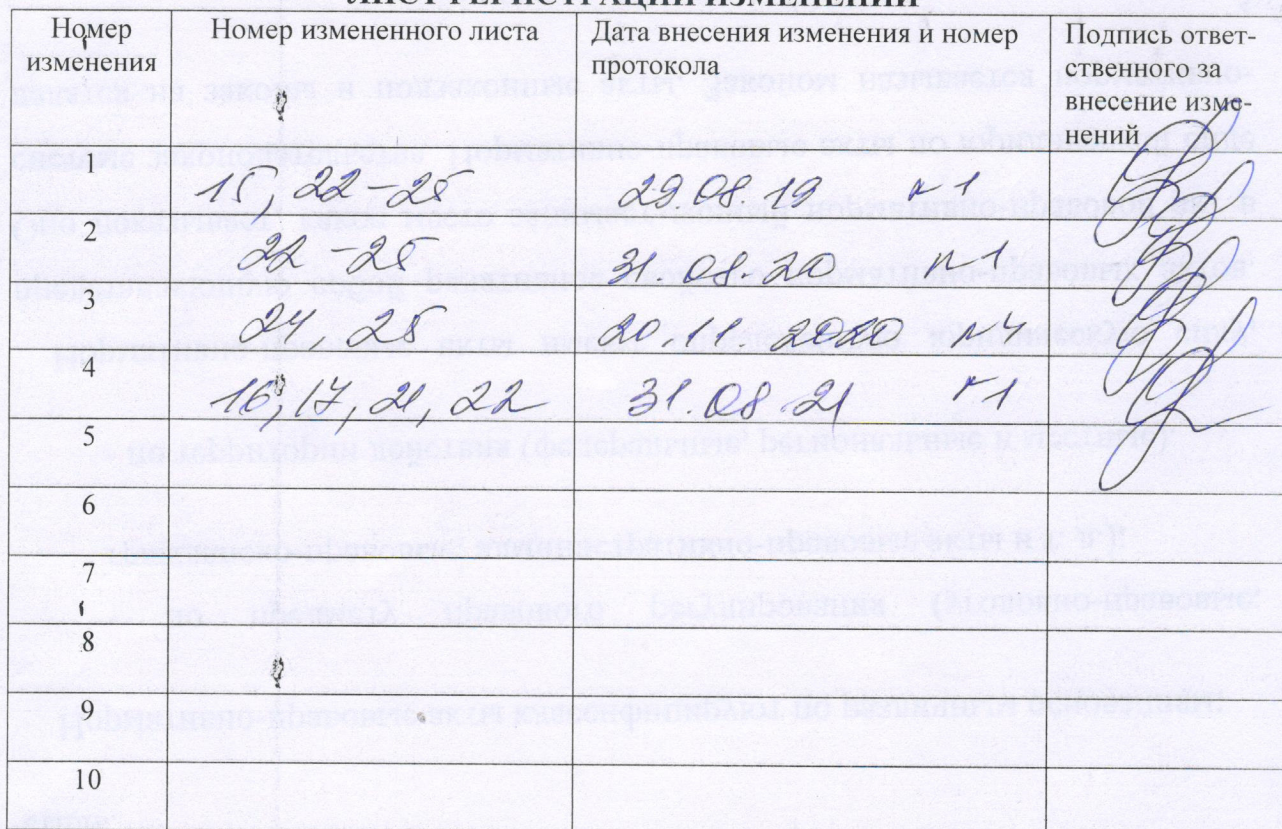 ЛИСТ РЕГИСТРАЦИИ ИЗМЕНЕНИЙ
Номер изменения
Номер измененного листа
Дата внесения изменения и номер протокола
Подпись ответ-
ственного за
внесение изме-
нений
1
15, 22-25
29.08.19 №1
2
22-25
31.08.20 №1
3
24, 25
4
16, 17, 21, 22
31.08.21 №1
5
6
7
8
9
10